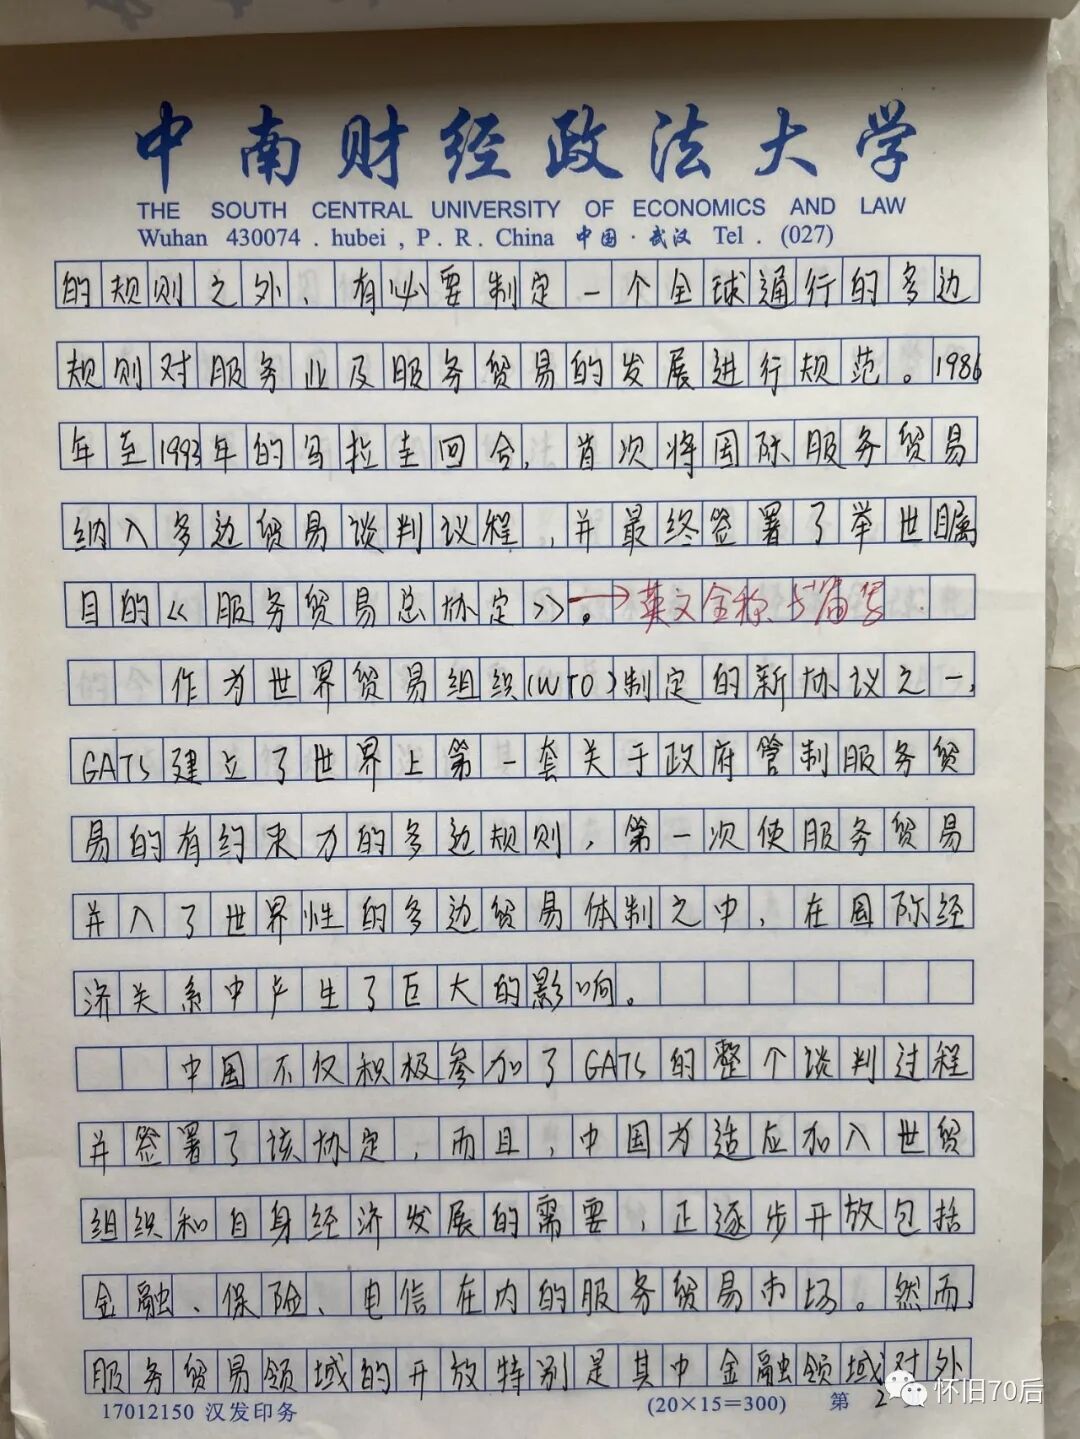 中南财经政法大学
THE SOUTH CENTRAL UNIVERSITY OF ECONOMICS AND LAW
Wuhan 430074 . hubei , P . R . China 中国 · 武汉 Tel . (027)
的规则之外、有必要制定一个全球通行的多边
规则对服务业及服务贸易的发展进行规范。1986
年至1993年的乌拉圭回合,首次将国际服务贸易
纳入多边贸易谈判议程,并最终签署了举世瞩
目的《服务贸易总协定》。→英文全称、
作为世界贸易组织(WTO)制定的新协议之一,
GATS建立了世界上第一套关于政府管制服务贸
易的有约束力的多边规则,第一次使服务贸易
并入了世界性的多边贸易体制之中,在国际经
济关系中产生了巨大的影响。
中国不仅积极参加了GATS的整个谈判过程
并签署了该协定,而且,中国为适应加入世贸
组织和自身经济发展的需要,正逐步开放包括
金融、保险、电信在内的服务贸易市场。然而,
服务贸易领域的开放特别是其中金融领域对外
17012150 汉发印务 (20×15=300) 第 2
怀旧70后